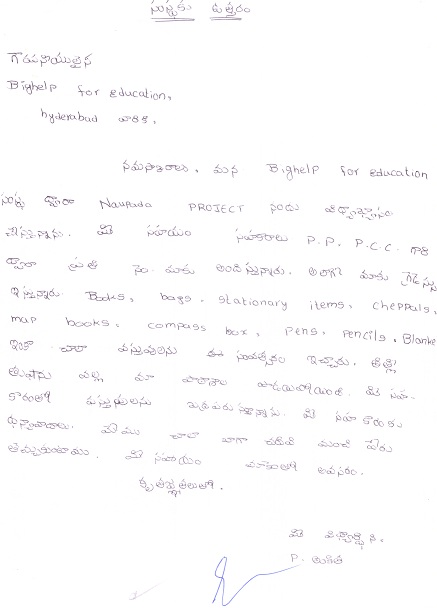 సంస్థకు ఉత్తరం
గౌరవనీయులైన
Bighelp for education,
hyderabad వారికి,
నమస్కారాలు, మన Bighelp for education
సంస్థ ద్వారా Naupada PROJECT నందు
చేస్తున్నాను. మీ సహాయం సహకారాలు P.P, P.C.C. గారి
ద్వారా ప్రతి సం. మాకు అందిస్తున్నారు. అలాగే మాకు
ఇస్తున్నారు. Books, bags, stationary items, cheppals,
map books, compass box, pens, pencils, Blanke
ఇంకా చాలా వస్తువులను ఈ సంవత్సరం ఇచ్చారు.
తుఫాను వల్ల మా పాఠశాల మీ సహ-
కారంతో
ధన్యవాదాలు. మేము చాలా బాగా చదివి మంచి పేరు
తెచ్చుకుంటాము. మీ సహాయం మాకెంతో అవసరం.
కృతజ్ఞతలతో.
మీ విద్యార్థిని,
P.